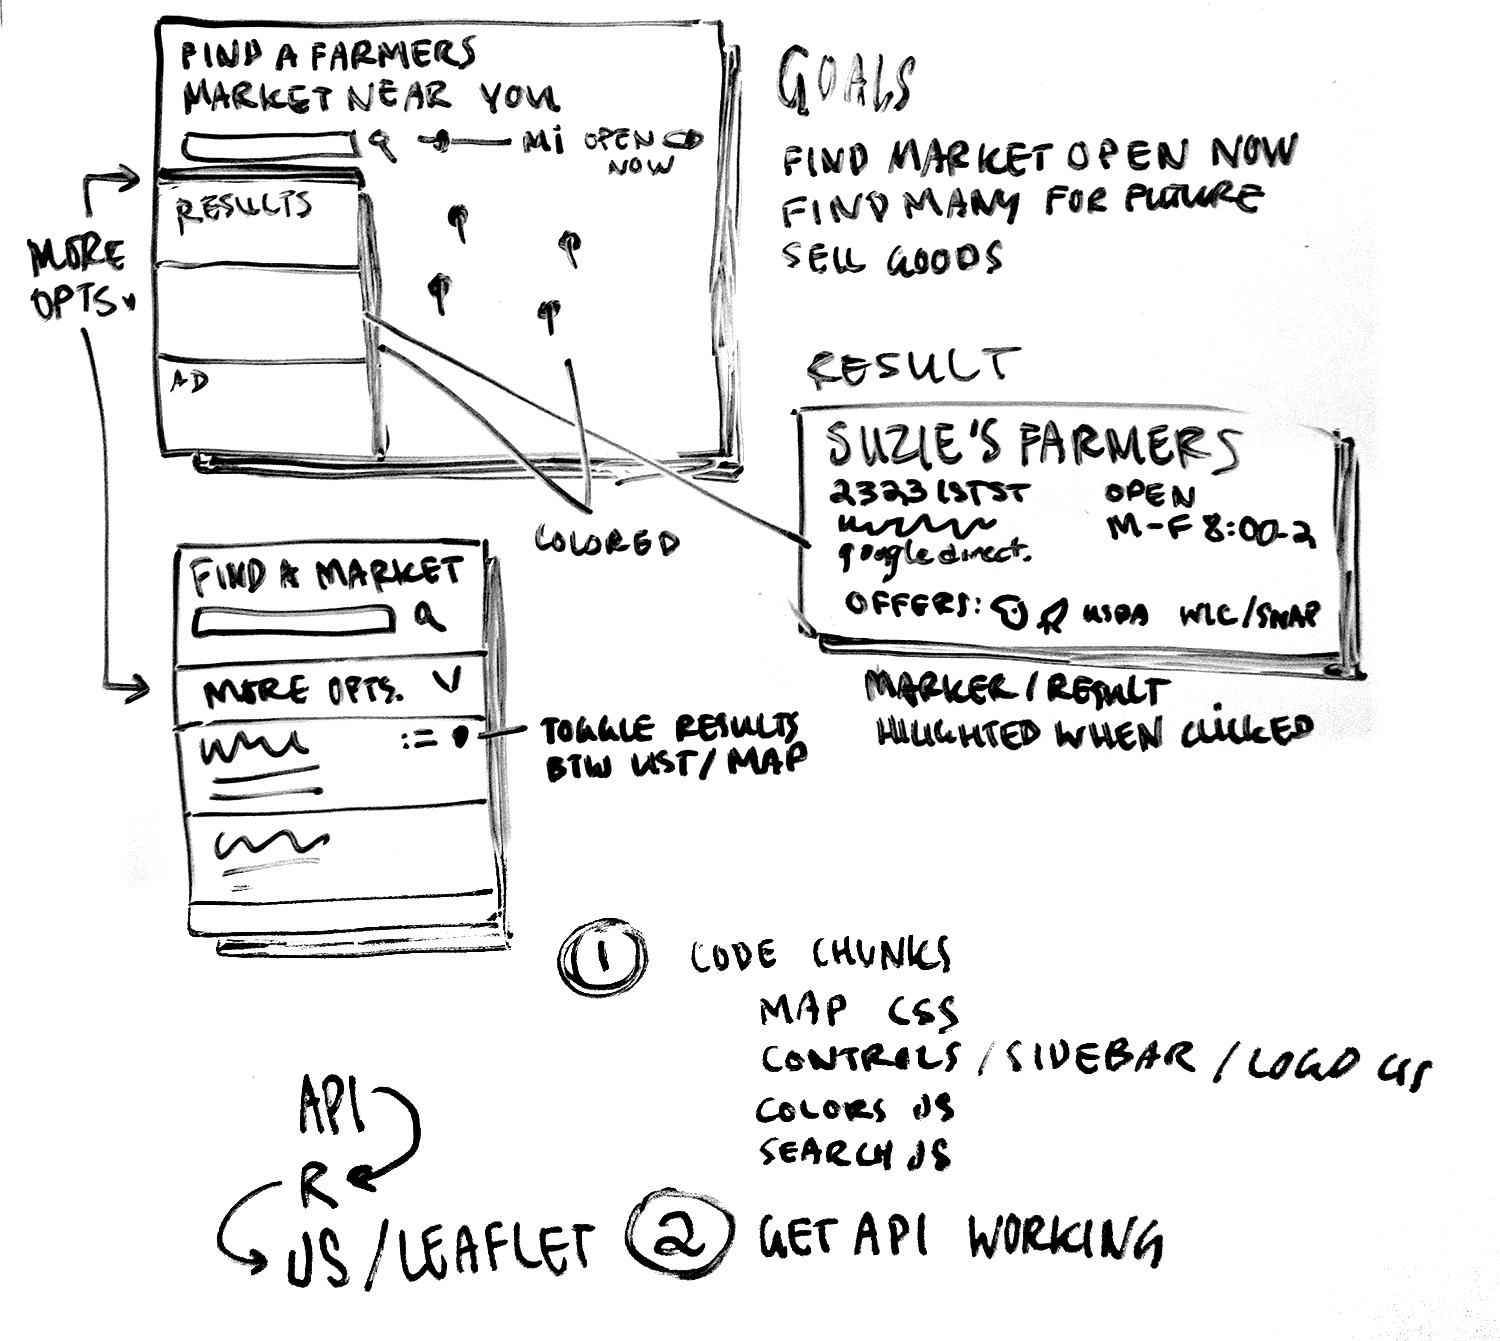 FIND A FARMERS
MARKET NEAR YOU
MI OPEN
NOW
RESULTS
AD
MORE
OPTS.
COLORED
GOALS
FIND MARKET OPEN NOW
FIND MANY FOR FUTURE
SELL GOODS
RESULT
SUZIE'S FARMERS
2323 1ST ST
OPEN
M-F 8:00-2
google direct.
OFFERS: USDA WIC/SNAP
MARKER/RESULT
HILIGHTED WHEN CLICKED
FIND A MARKET
MORE OPTS. V
TOGGLE RESULTS
BTW LIST/MAP
1 CODE CHUNKS
MAP CSS
CONTROLS/SIDEBAR/LOGO
COLORS JS
SEARCH JS
API
R
JS/LEAFLET
2 GET API WORKING